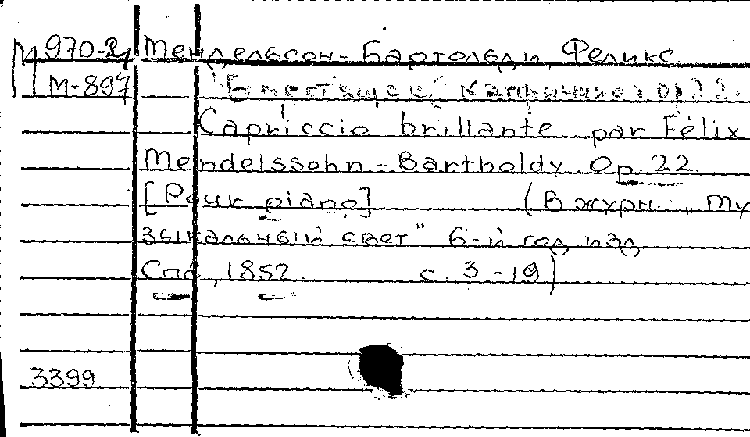 М 970-2 Мендельсон-Бартольди, Феликс
М-897 "Блестящее каприччио" ор 22.
Capriccio brillante par Félix
Mendelssohn-Bartholdy. Op. 22
[Pour piano] (В журн. „Му
зыкальный свет" 6-й год изд
Спб, 1852. с. 3-19)
3399